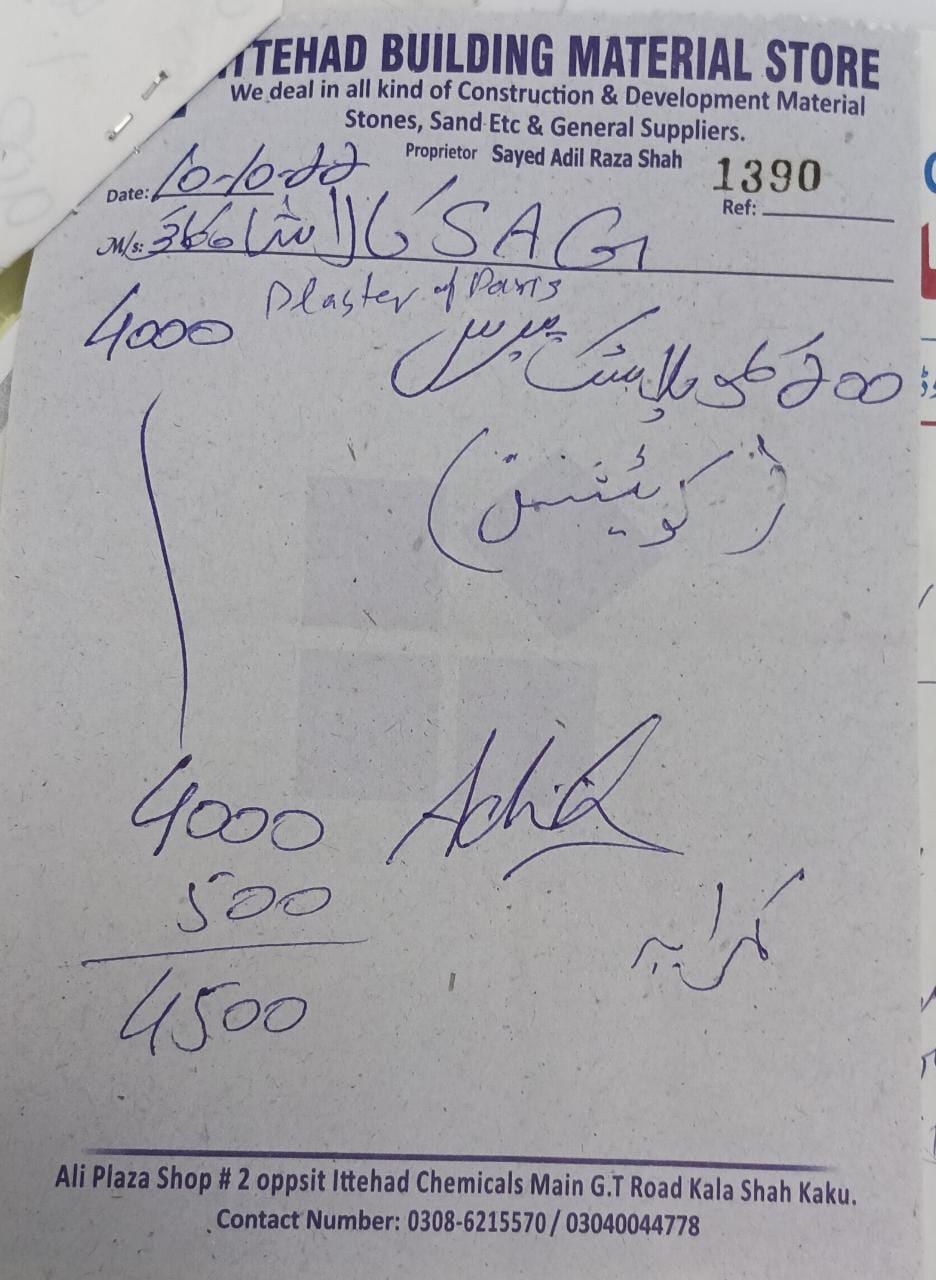 ITTEHAD BUILDING MATERIAL STORE
We deal in all kind of Construction & Development Material
Stones, Sand Etc & General Suppliers.
Proprietor Sayed Adil Raza Shah
1390
Date: 10-10-22
Ref:
M/s: USAG
Plaster of Paris
4000
200 کلو پلاسٹک پیرس
4000
500 کرایہ
4500
Ali Plaza Shop # 2 oppsit Ittehad Chemicals Main G.T Road Kala Shah Kaku.
Contact Number: 0308-6215570 / 03040044778